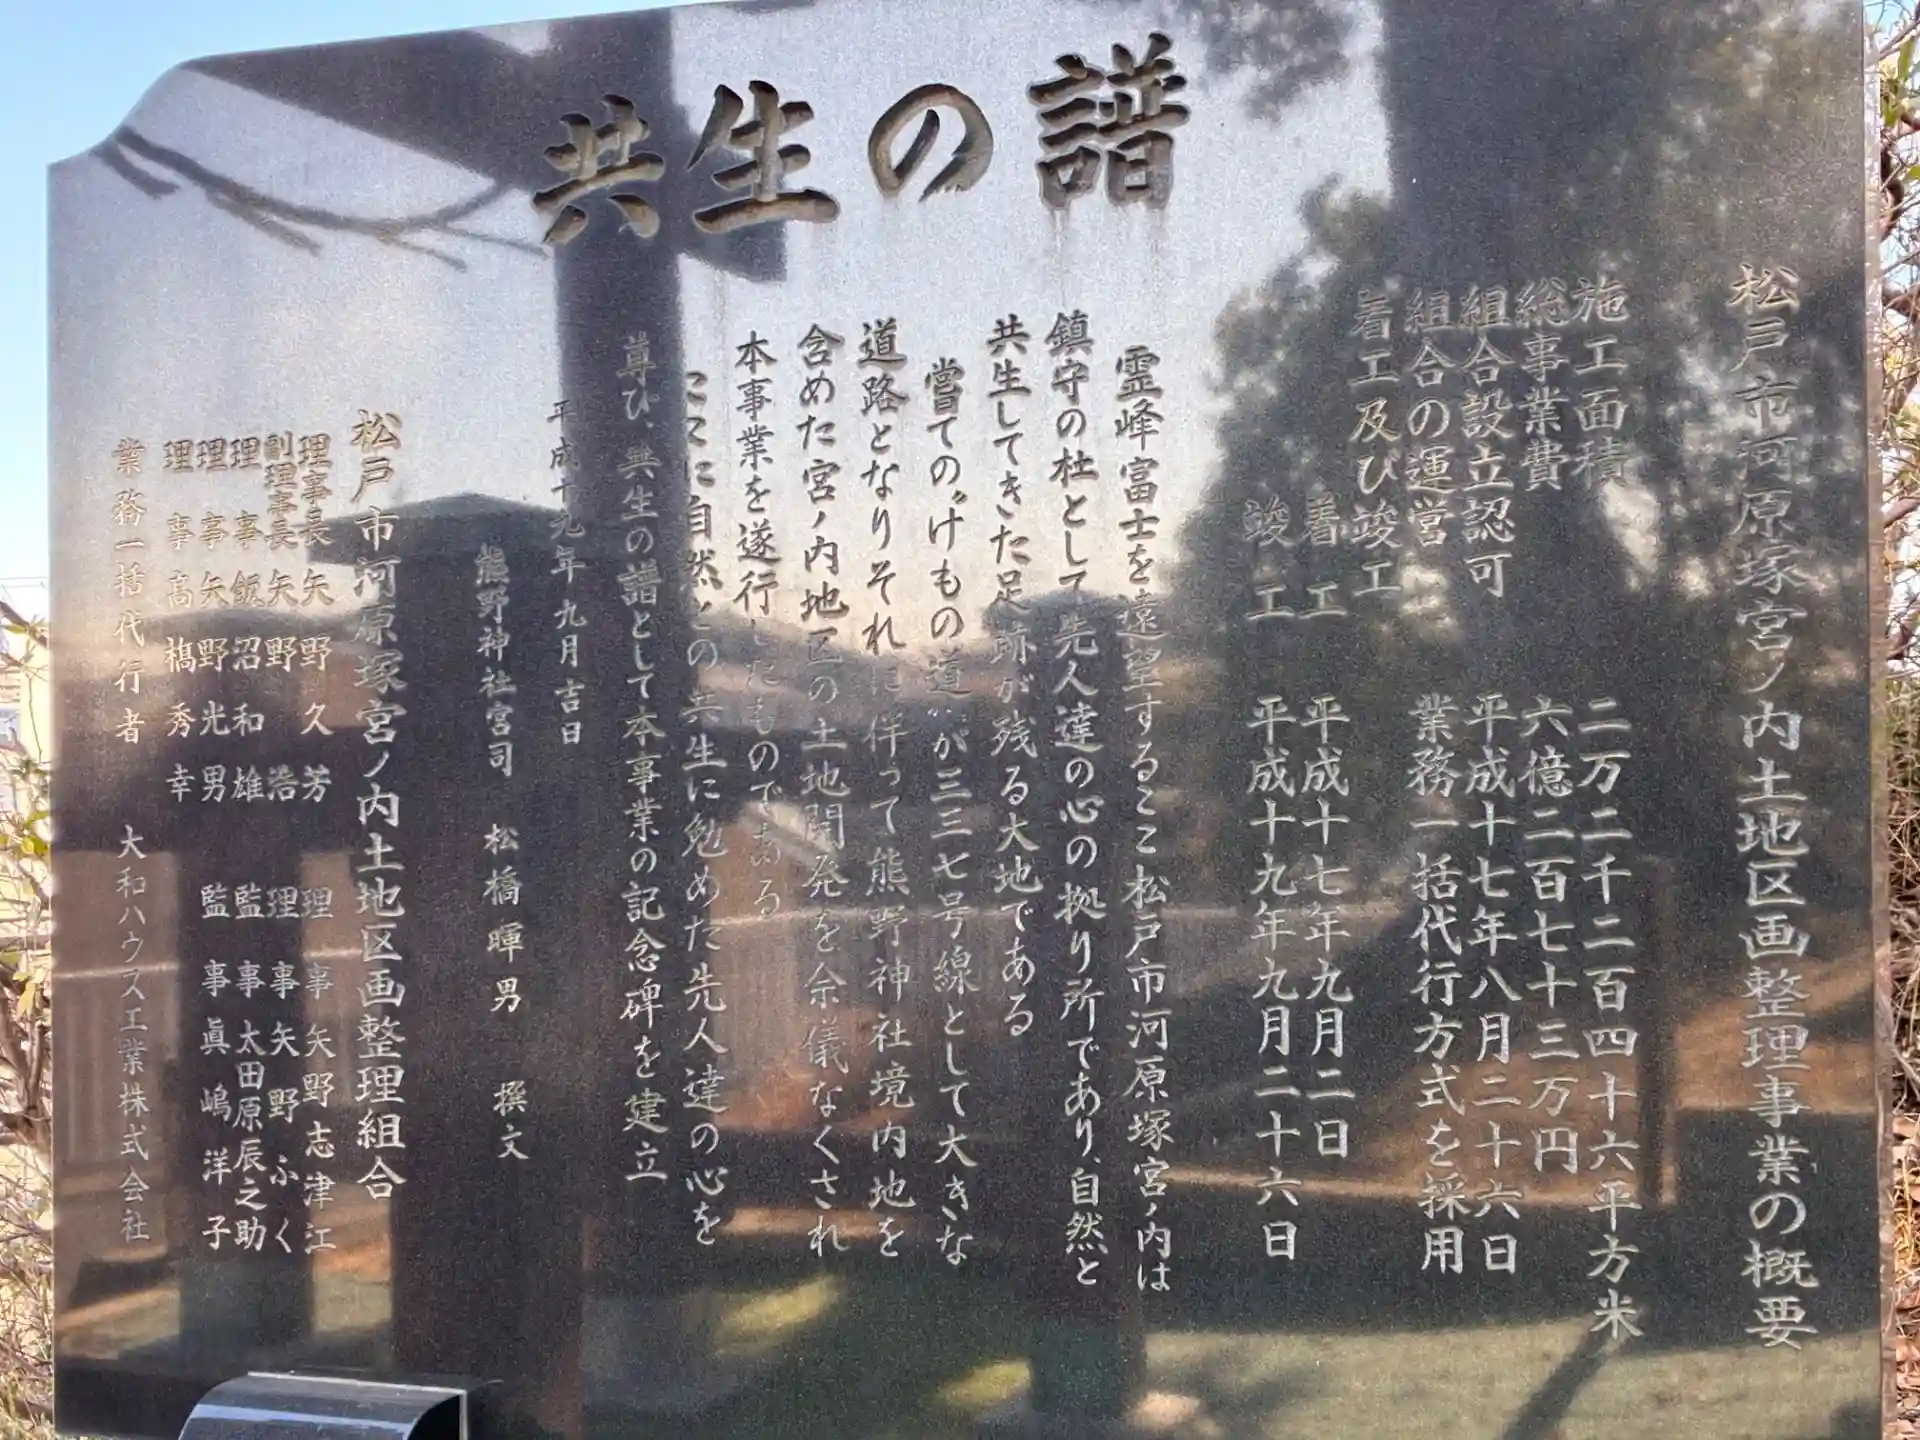 共生の譜
松戸市河原塚宮ノ内土地区画整理事業の概要
施工面積 二万二千二百四十六平方米
総事業費 六億二百七十三万円
組合設立認可 平成十七年八月二十六日
組合の運営 業務一括代行方式を採用
着工及び竣工
着工 平成十七年九月二日
竣工 平成十九年九月二十六日
霊峰富士を遠望するここ松戸市河原塚宮ノ内は
鎮守の杜として先人達の心の拠り所であり、自然と
共生してきた足跡が残る大地である
嘗ての〝けもの道〟が三三七号線として大きな
道路となりそれに伴って熊野神社境内地を
含めた宮ノ内地区の土地開発を余儀なくされ
本事業を遂行したものである
ここに自然との共生に勉めた先人達の心を
尊び、共生の譜として本事業の記念碑を建立
平成十九年九月吉日
熊野神社宮司 松橋暉男 撰文
松戸市河原塚宮ノ内土地区画整理組合
理事長 矢野久芳 理事 矢野志津江
副理事長 矢野浩 理事 矢野ふく
理事 飯沼和雄 監事 太田原辰之助
理事 矢野光男 監事 眞嶋洋子
理事 高橋秀幸
業務一括代行者 大和ハウス工業株式会社